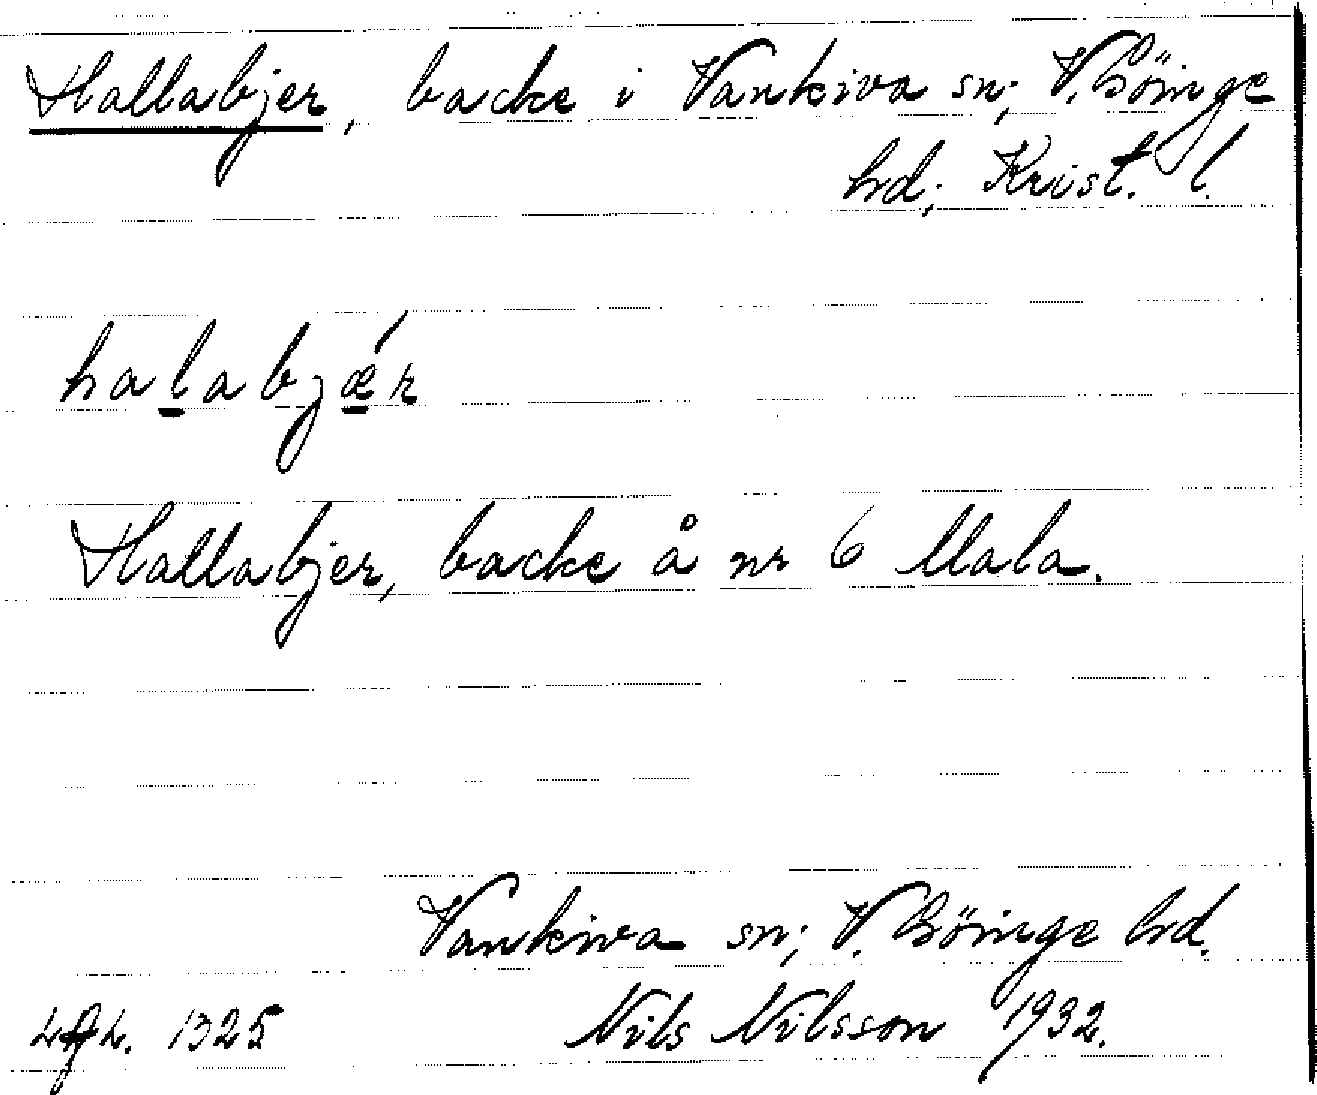 Hallabjer, backe i Vankiva sn; V. Göinge
hd; Krist. l.
halabjǽr
Hallabjer, backe å nr 6 Mala.
Vankiva sn; V. Göinge hd.
Nils Nilsson 1932.